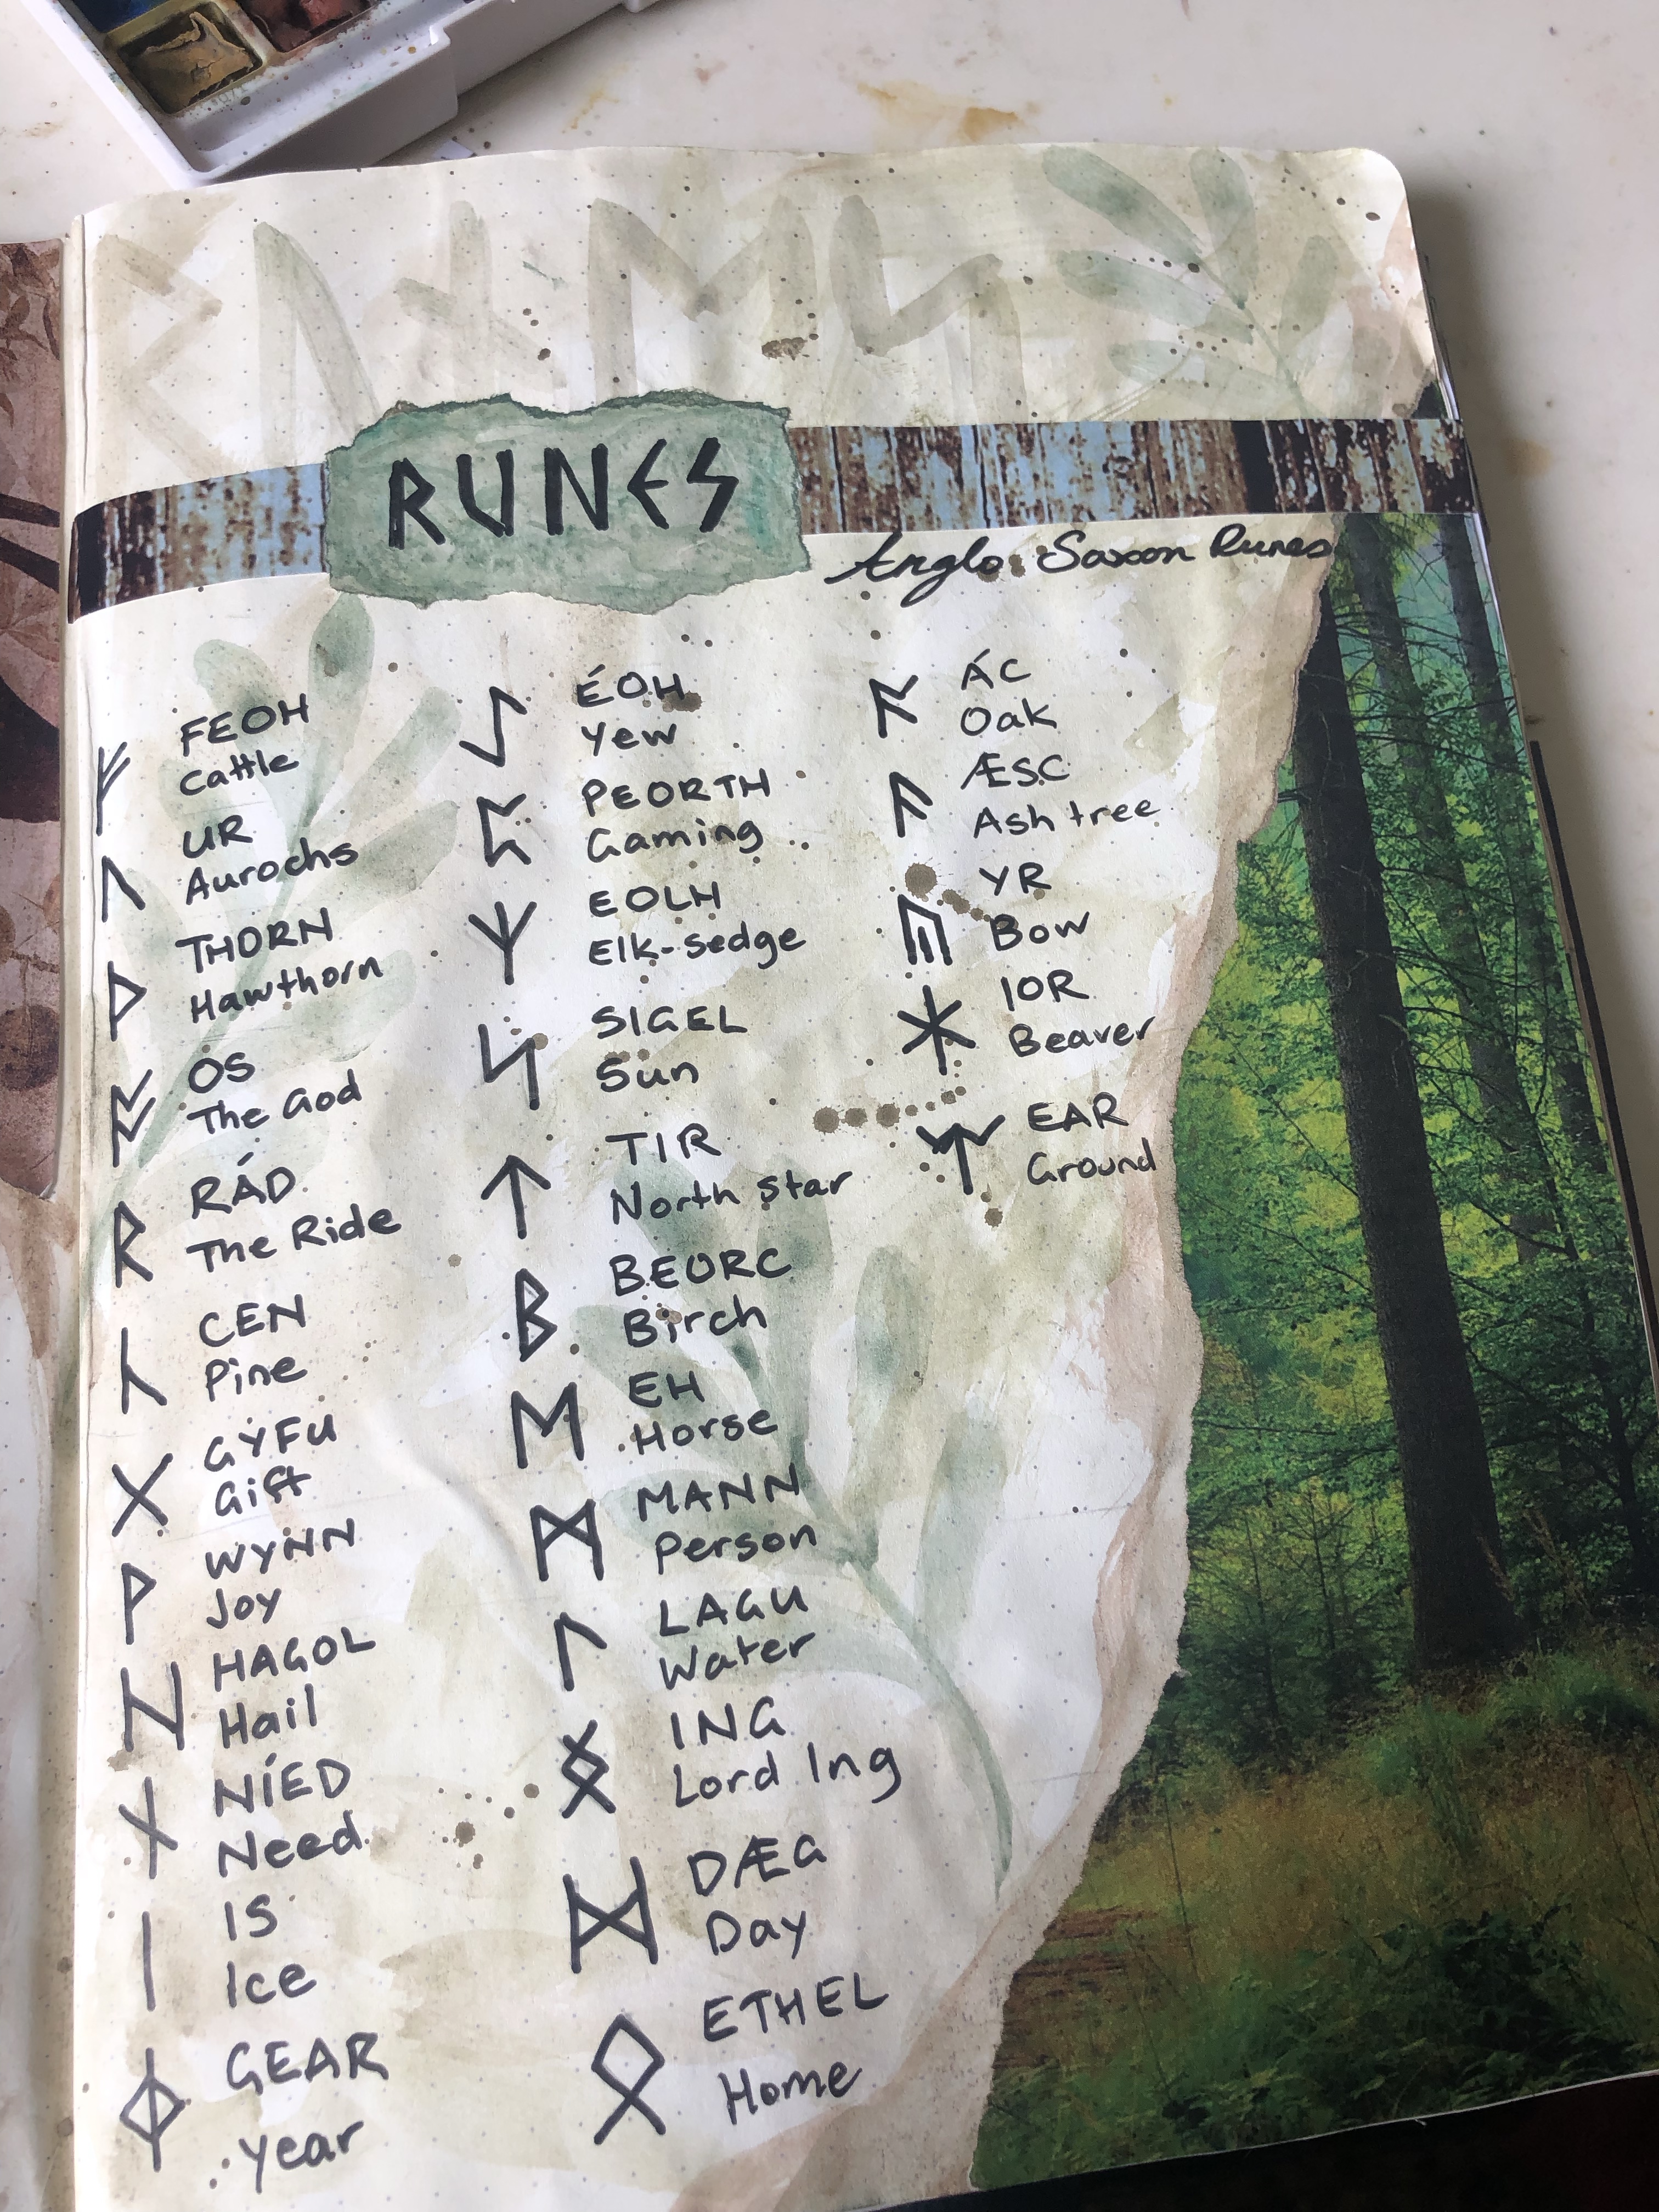 RUNES
Anglo Saxon Runes
ᚠ FEOH
Cattle
ᚢ UR
Aurochs
ᚦ THORN
Hawthorn
ᚩ OS
The God
ᚱ RÁD
The Ride
ᚳ CEN
Pine
ᚷ GYFU
Gift
ᚹ WYNN
Joy
ᚺ HAGOL
Hail
ᚾ NÍED
Need
ᛁ IS
Ice
ᛄ GEAR
Year
ᛇ ÉOH
Yew
ᛈ PEORTH
Gaming
ᛉ EOLH
Elk-Sedge
ᛋ SIGEL
Sun
ᛏ TIR
North Star
ᛒ BEORC
Birch
ᛖ EH
Horse
ᛗ MANN
Person
ᛚ LAGU
Water
ᛝ ING
Lord Ing
ᛞ DÆG
Day
ᛟ ETHEL
Home
ᚪ ÁC
Oak
ᚫ ÆSC
Ash tree
ᚣ YR
Bow
ᛡ IOR
Beaver
ᛠ EAR
Ground